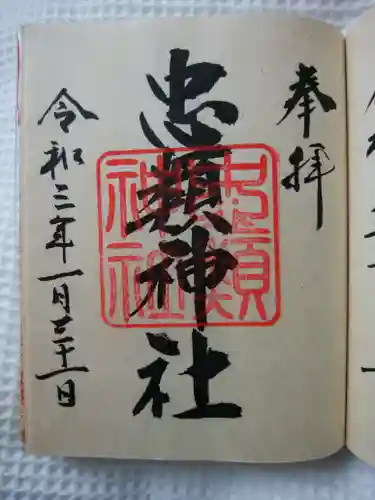 奉拝
忠類神社
忠類神社
令和三年一月二十一日